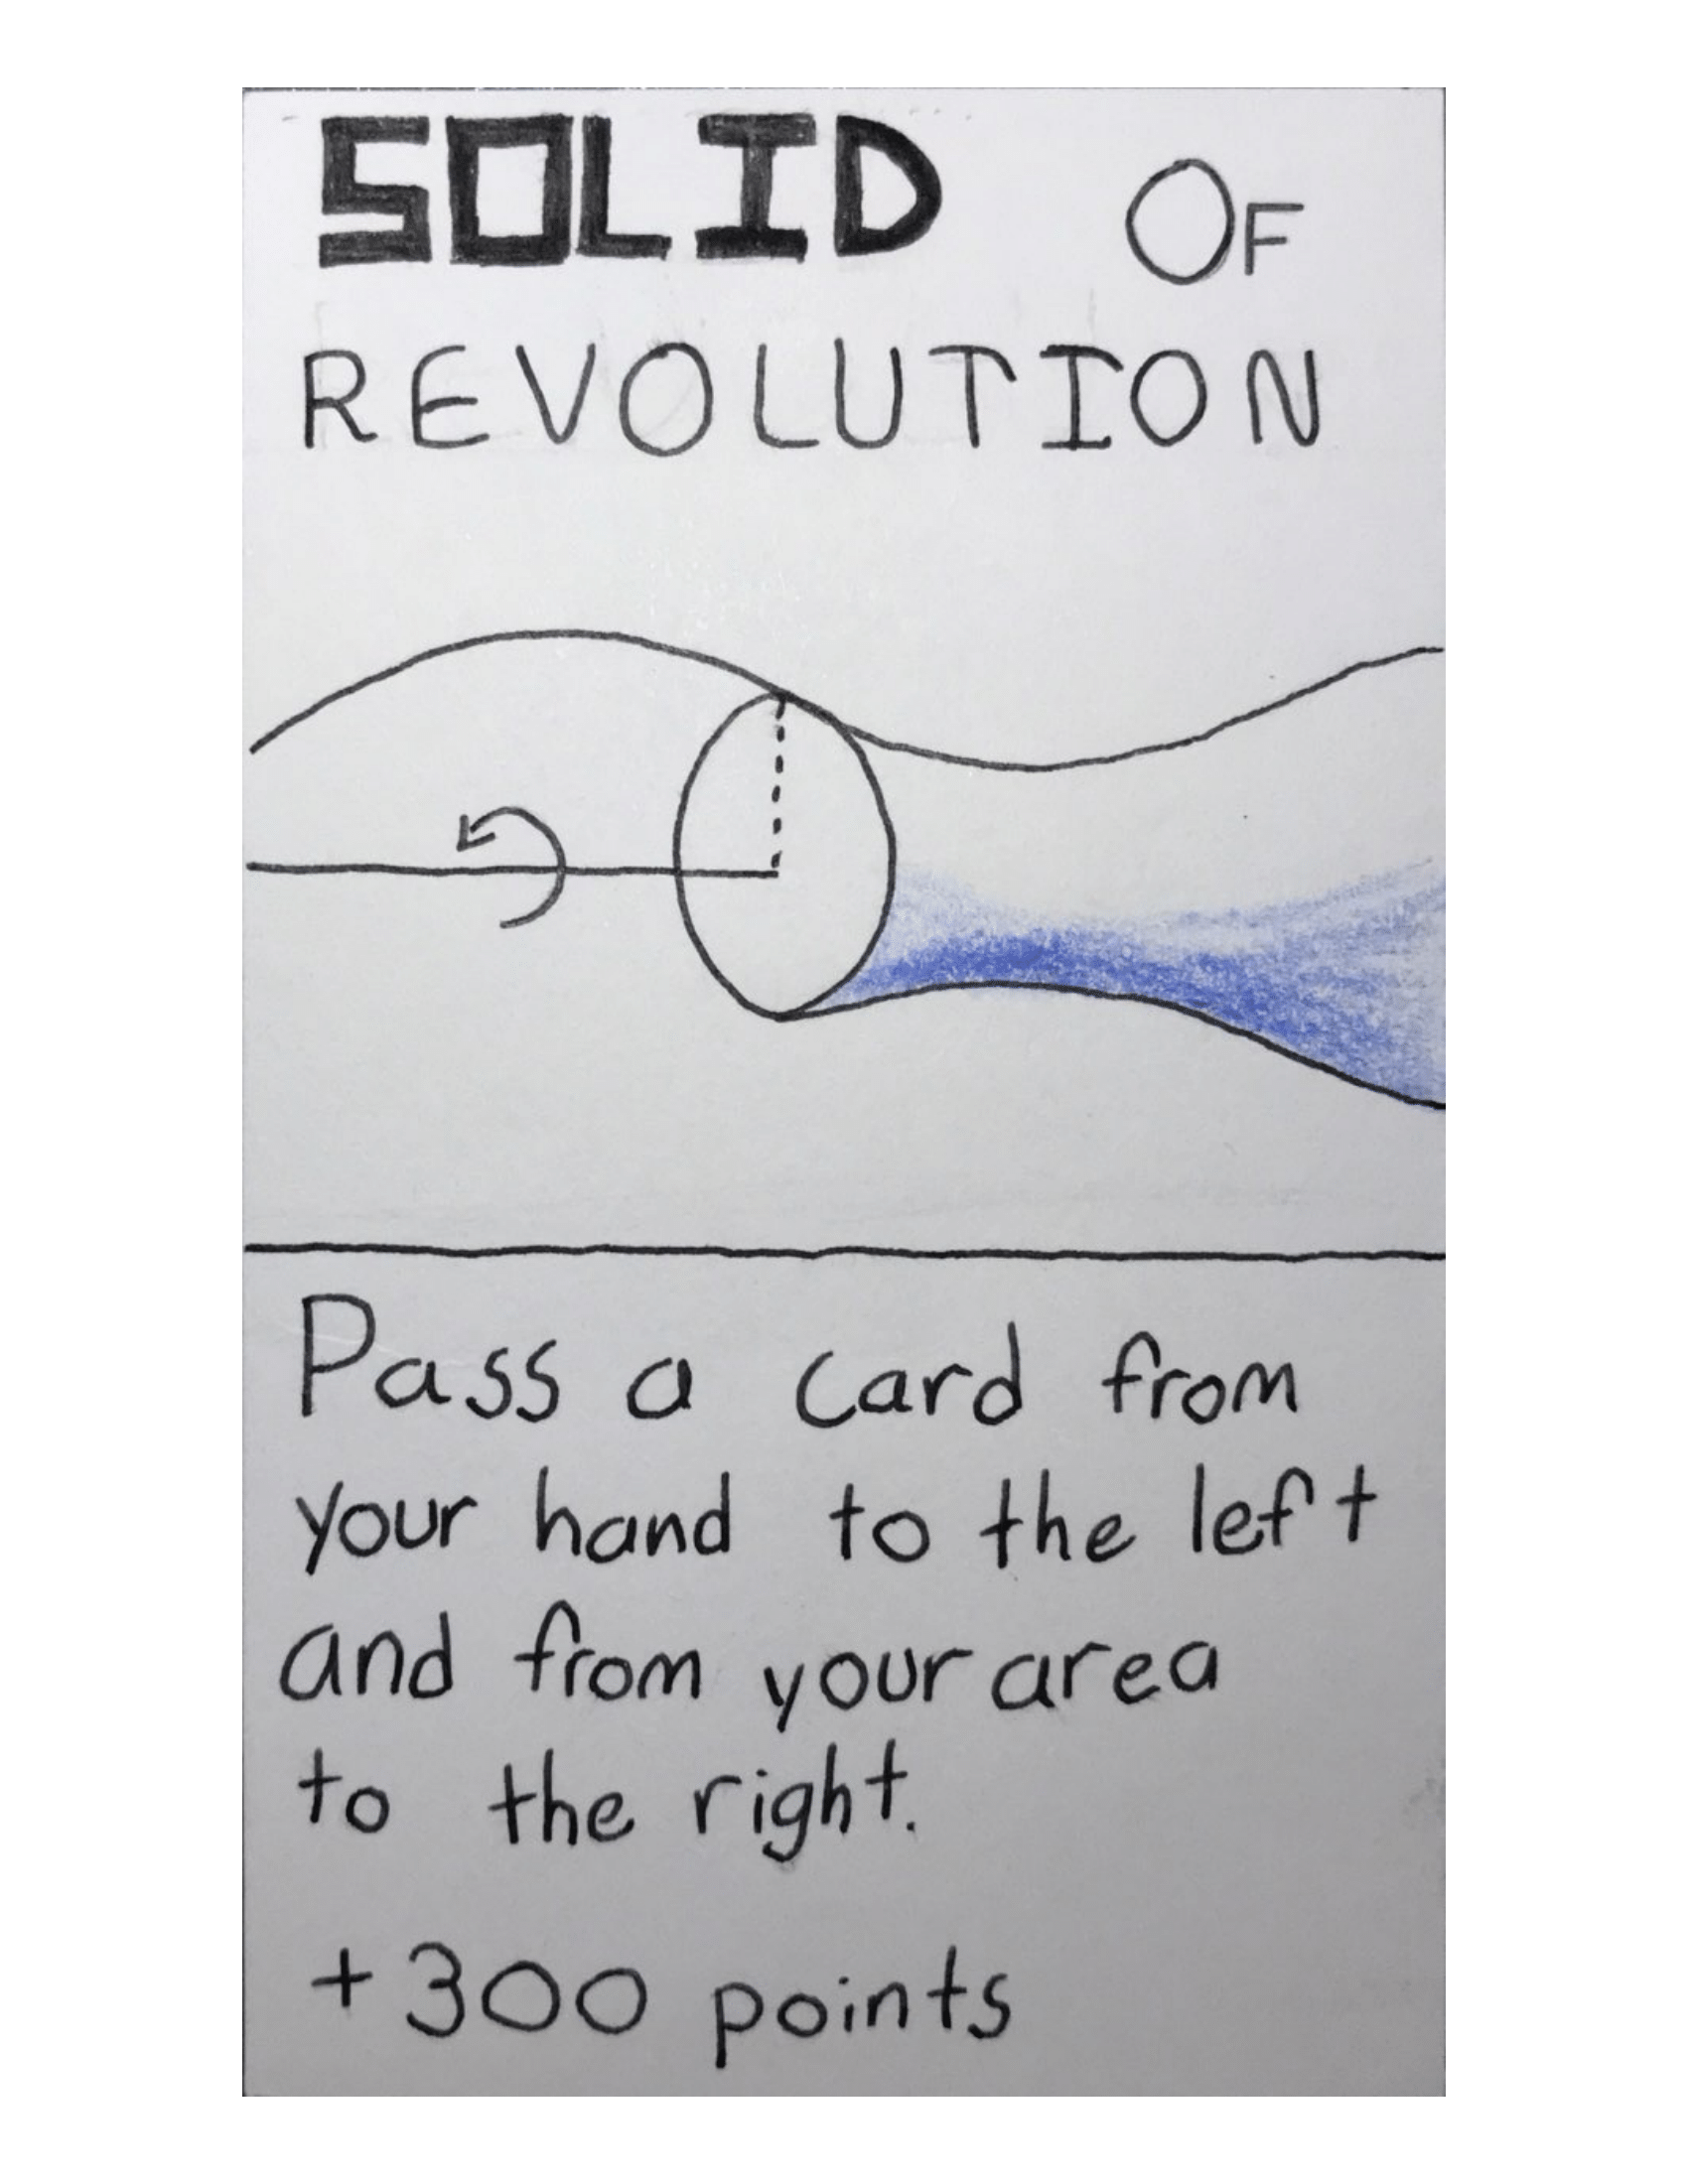 SOLID OF
REVOLUTION
Pass a card from
your hand to the left
and from your area
to the right.
+300 points